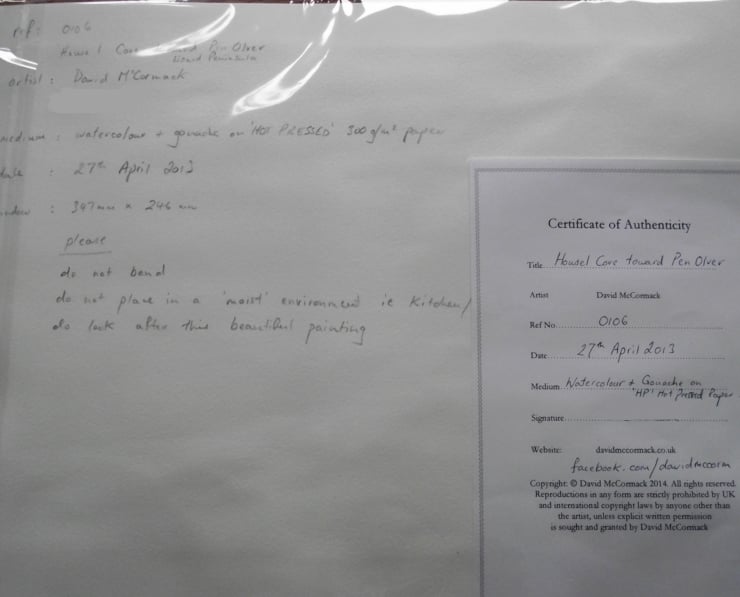 ref: 0106
Housel Cove toward Pen Olver
Lizard Peninsula
artist: David McCormack
medium: watercolour + gouache on 'HOT PRESSED' 300g/m² paper
date : 27th April 2013
window : 347mm x 246mm
please
do not bend
do not place in a 'moist' environment ie Kitchen/
do look after this beautiful painting
Certificate of Authenticity
Title Housel Cove toward Pen Olver
Artist David McCormack
Ref No. 0106
Date 27th April 2013
Medium Watercolour + Gouache on
'HP' Hot Pressed Paper
Signature
Website: davidmccormack.co.uk
facebook.com/davidmccorm
Copyright: © David McCormack 2014. All rights reserved.
Reproductions in any form are strictly prohibited by UK
and international copyright laws by anyone other than
the artist, unless explicit written permission
is sought and granted by David McCormack